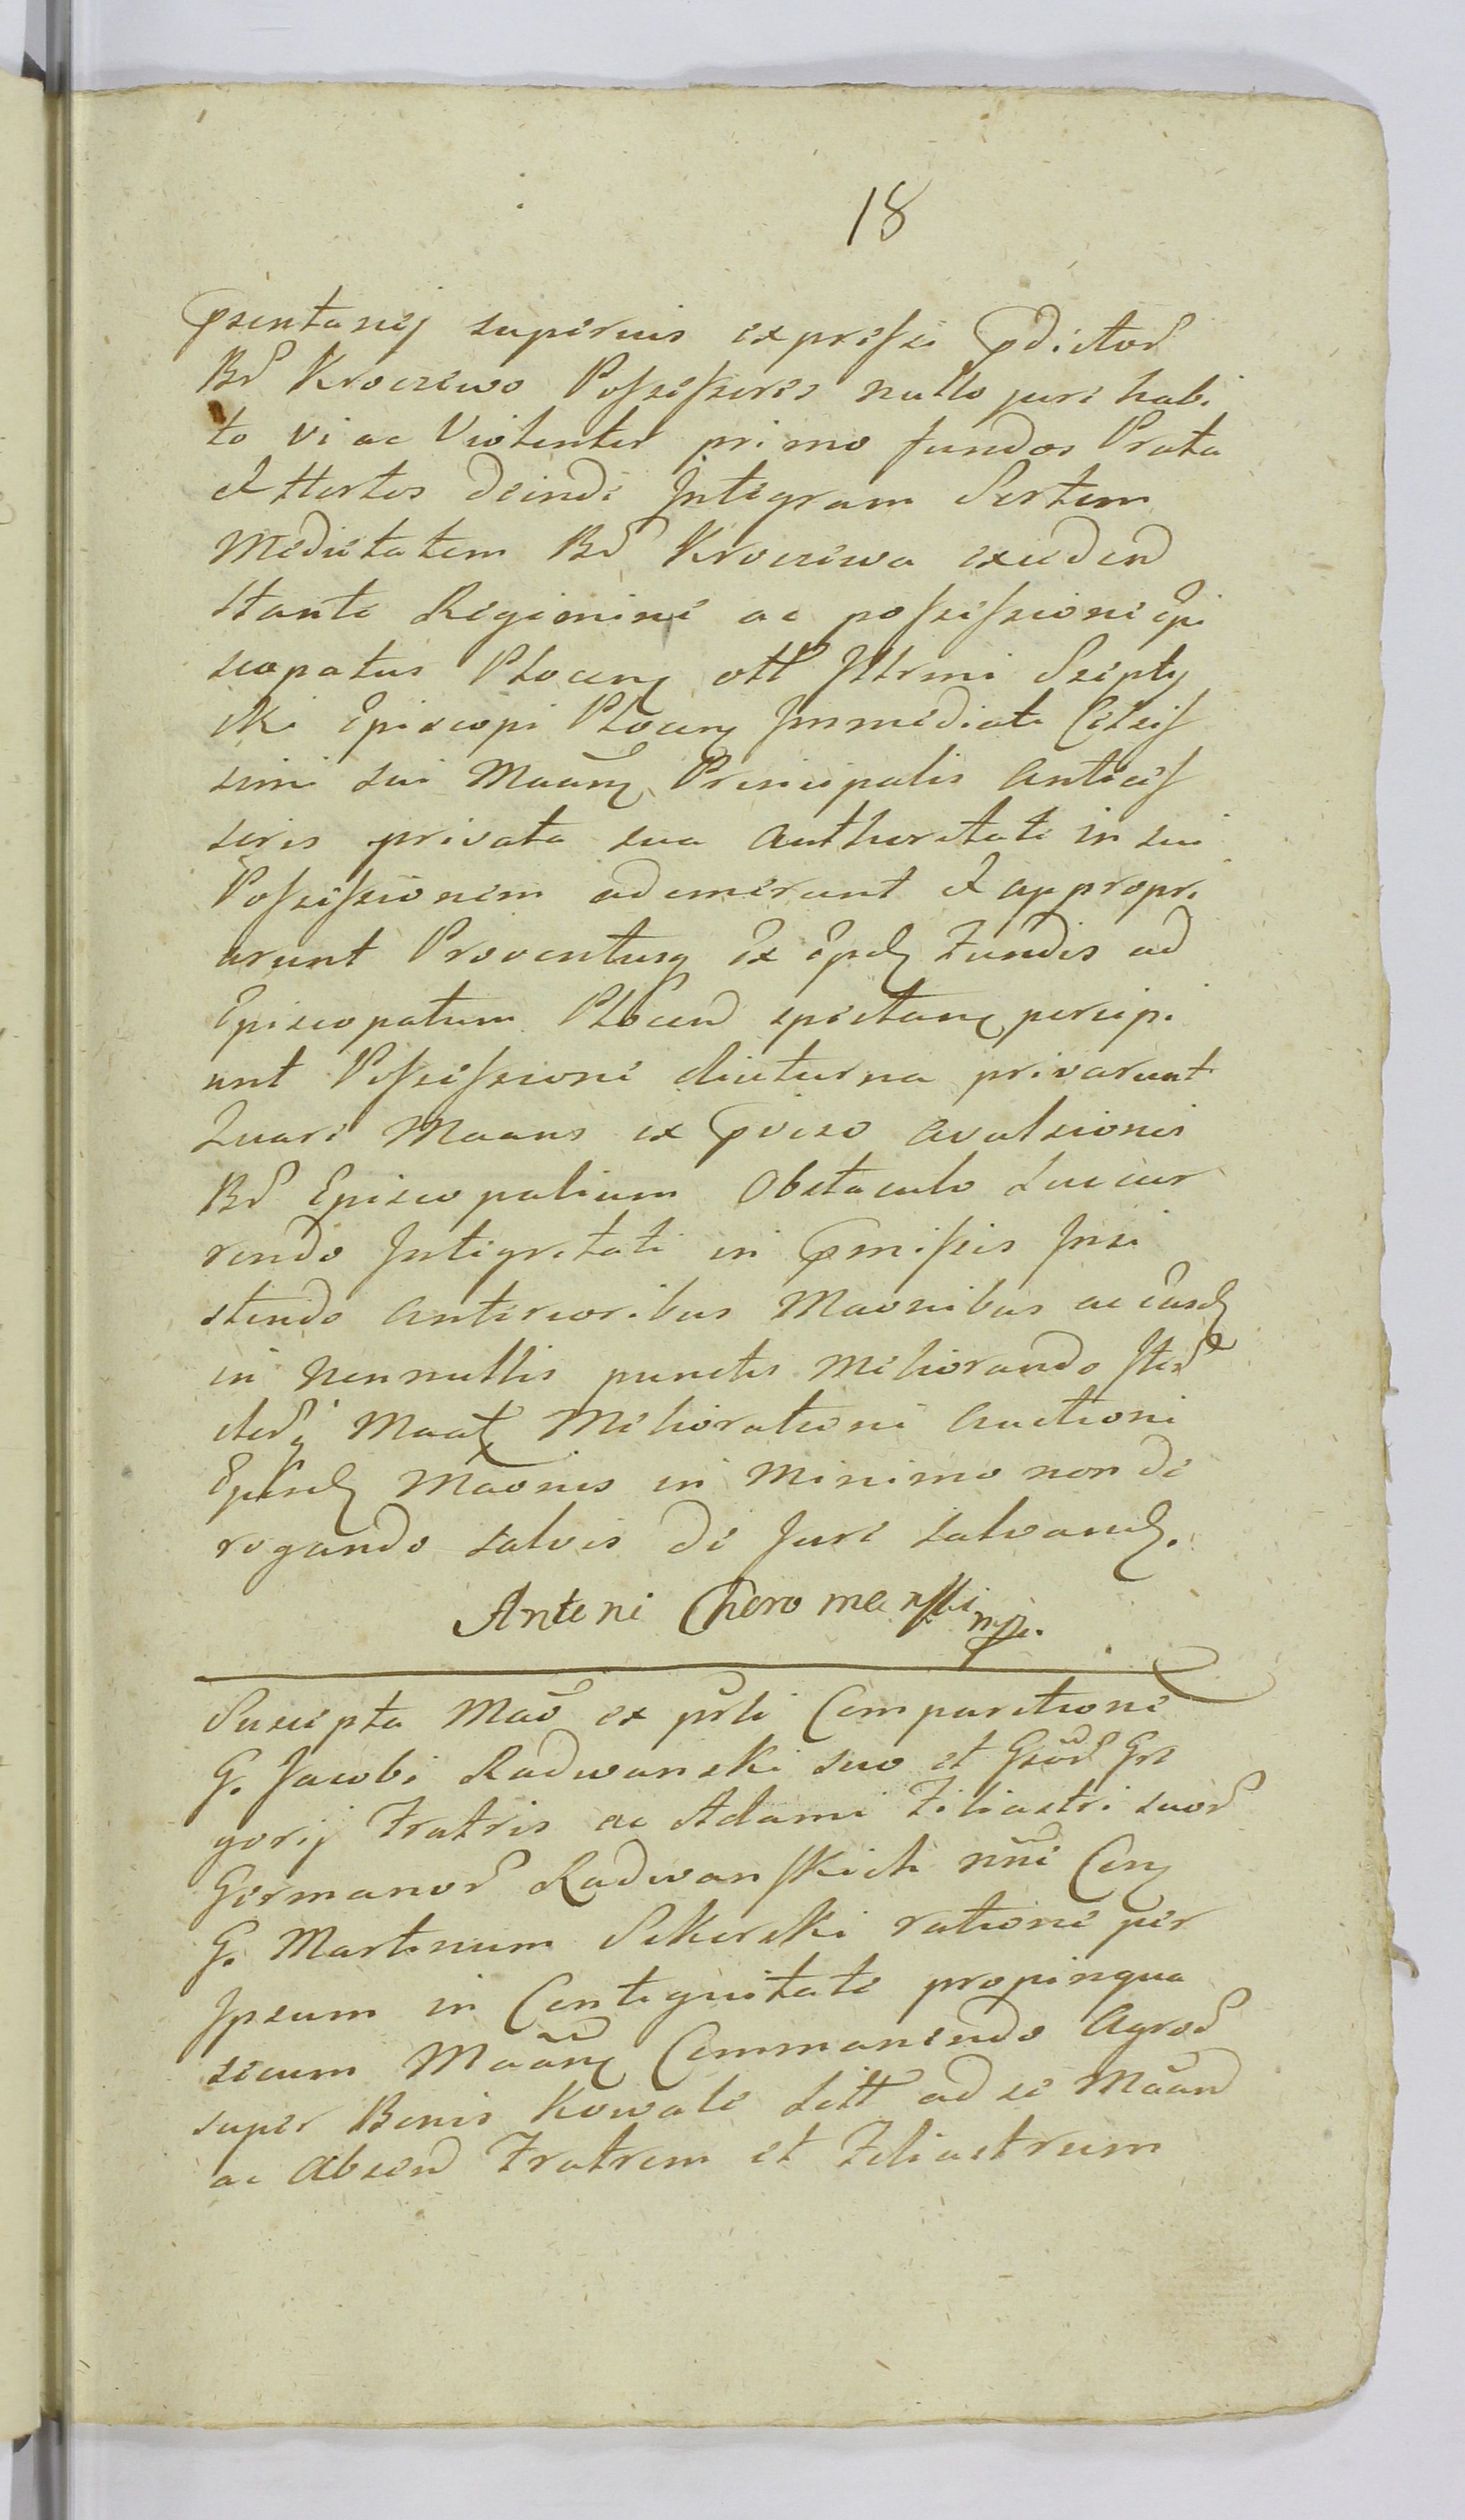 18
Praesentanei superius expressi Praedictor
Br Kroczewo Possessores nullo jure habi
to vi ac Violenter primo fundos Prata
et Hortos deinde Integram Sortem
Medietatem Br Kroczewa excedend
stante Regimine ac possessione Epi
scopatus Plocen olt Illrmi Szepty
cki Episcopi Plocen Immediate Celsis
simi sui Maanz Principalis Anteces
soris privata sua Authoritate in sui
Possessionem ademerunt et appropri
arunt Proventusq Ex Fundis ad
Episcopatum Plocen spectanz percipi
unt Possessione diuturna privarunt
Quare Maans ex praeviso avulsionis
Br Episcopalium Obstaculo Succur
rendo Integritati in Praemissis Insi
stendo Anterioribus Maonibus ac easd
in nonnullis punctis Meliorando
Maat Meliorationi Auctioni
Maonis in Minimo non de
rogando salvis de Jure salvand.
Antoni Choromanski mp.
Suscepta Mao ex prsti Comparitione
G. Jacobi Radwanski suo et Gsor Gre
gorij Fratris ac Adami Filiastri suor
Germanor Radwanskich nne Con
G. Martinum Sikorski ratione per
Ipsum in Contiguitate propinqua
secum Maanz Commanendo Agror
super Bonis Kowale Sitt ad se Maand
ac Absend Fratrem et Filiastrum